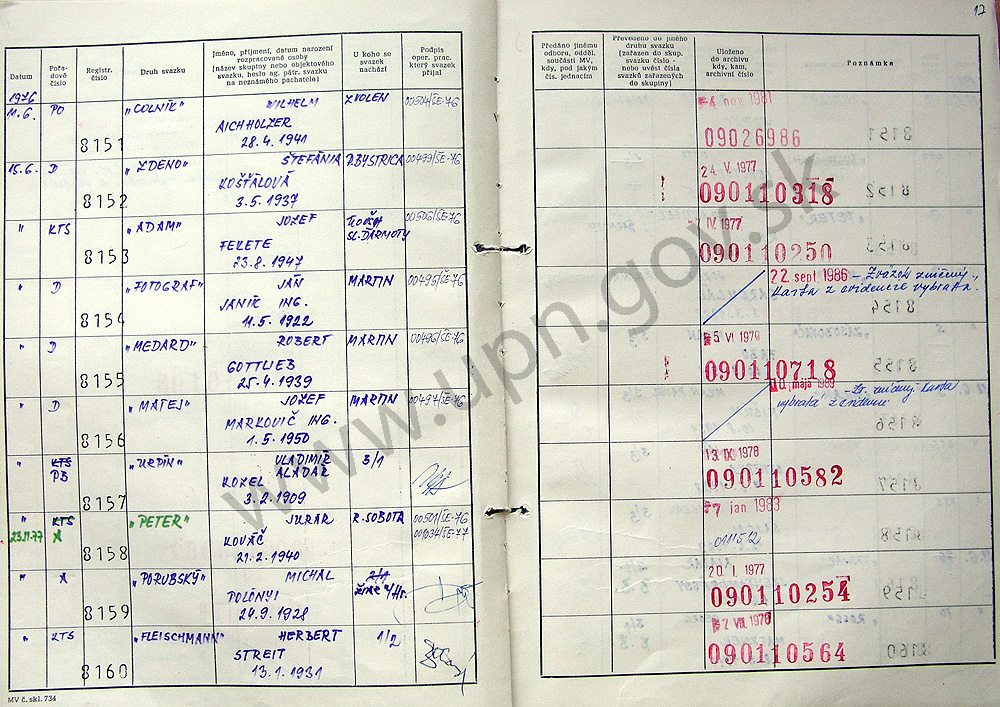 17
Datum
Pořadové číslo
Registr. číslo
Druh svazku
Jméno, příjmení, datum narození rozpracované osoby (název skupiny nebo objektového svazku, heslo ag. pátr. svazku na neznámého pachatele)
U koho se svazek nachází
Podpis oper. prac. který svazek přijal
Předáno jinému odboru, odděl. součásti MV, kdy, pod jakým čís. jednacím
Převedeno do jiného druhu svazku (zařazen do skup. svazku číslo - nebo uvést čísla svazků zařazených do skupiny)
Uloženo do archivu kdy, kam, archivní číslo
Poznámka
1976
11.6. PO 8151 „COLNÍK" WILHELM ZVOLEN 00504/ŠE-76
AICHHOLZER
28.4.1941
4 nov 1981
09026986
15.6. D 8152 „ZDENO" ŠTEFÁNIA B.BYSTRICA 00499/ŠE-76
KOŠŤÁLOVÁ
3.5.1937
24. V. 1977
090110318
" KTS 8153 „ADAM" JOZEF SL.ĎARMOTY 00506/ŠE-76
FEKETE
23.8.1947
IV. 1977
090110250
" D 8154 „FOTOGRAF" JÁN MARTIN 00495/ŠE-76
JANÍK ING.
11.5.1922
22. sept. 1986 - Zväzok zničený,
karta z evidencie vybratá.
" D 8155 „MEDARD" ROBERT MARTIN 00496/ŠE-76
GOTTLIEB
25.4.1939
5 VI 1979
090110718
" D 8156 „MATEJ" JOZEF MARTIN 00497/ŠE-76
MARKOVIČ ING.
1.5.1950
10. mája 1989 - zv. zničený karta
vybratá z evidencie
" KTS PB 8157 „URPÍN" VLADIMÍR ALADÁR 3/1
KOZEL
3.2.1909
13. IX. 1978
090110582
" KTS 8158 „PETER" JURAJ R.SOBOTA 00501/ŠE-76
23.11.77 A KOVÁČ 001034/ŠE-77
21.2.1940
7 jan 1983
" A 8159 „PORUBSKÝ" MICHAL 2/1
POLÓNYI
24.9.1928
20. I. 1977
090110254
" KTS 8160 „FLEISCHMANN" HERBERT 1/2
STREIT
13.1.1931
2 VIII. 1978
090110564
MV č. skl. 734
www.upn.gov.sk